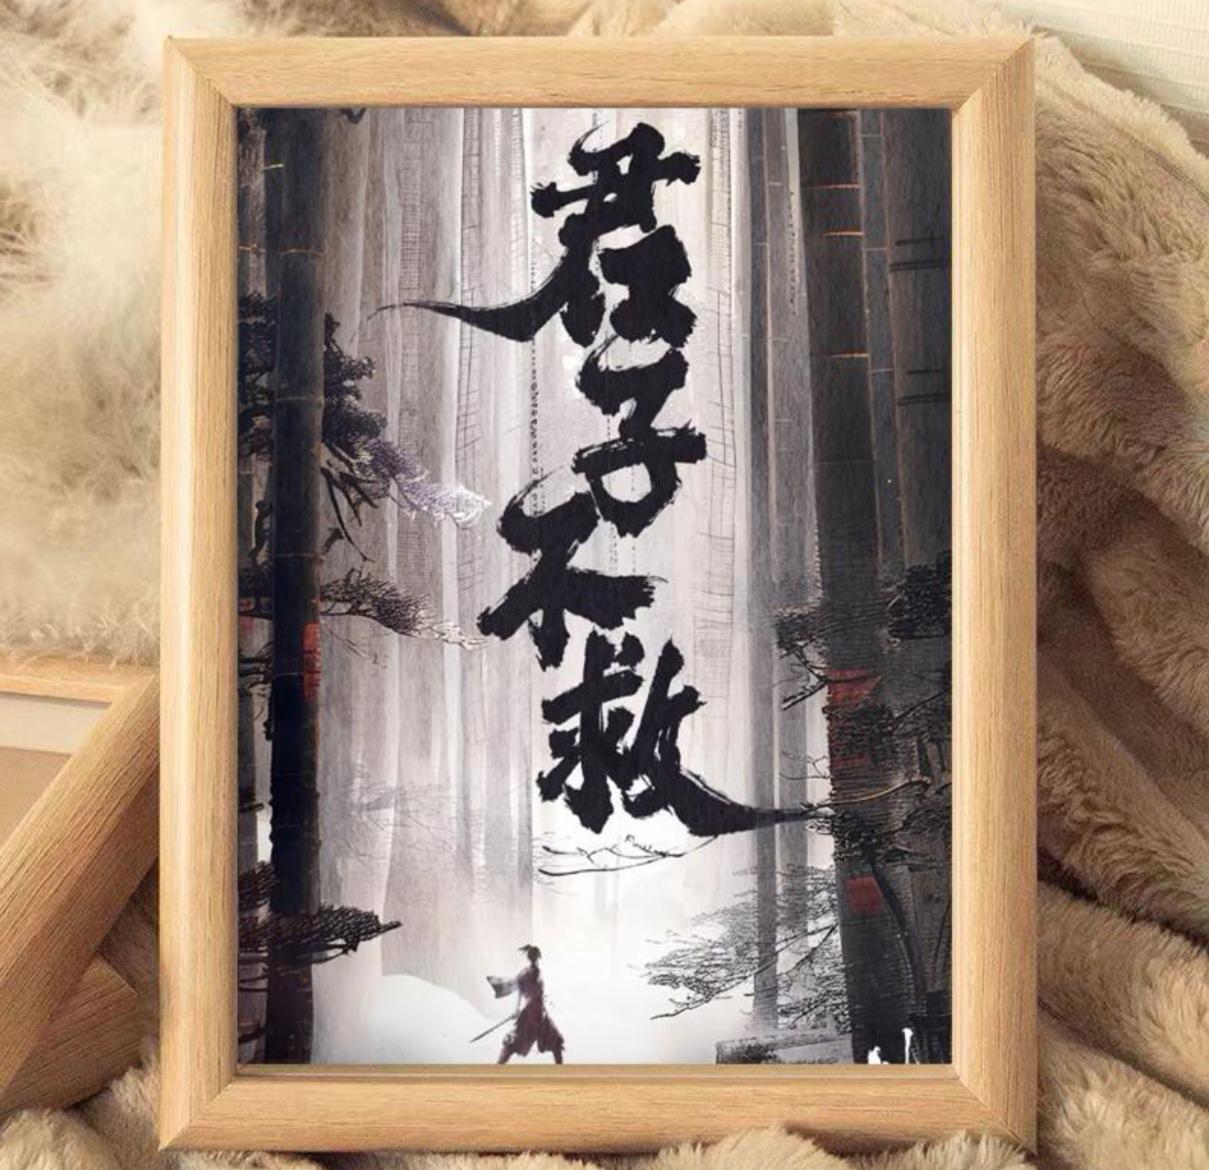 君子不救